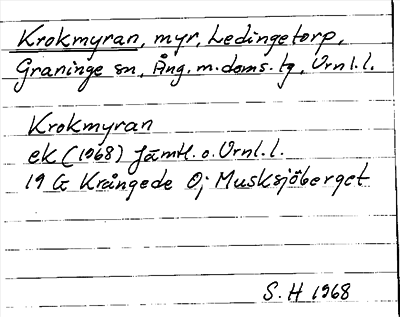 Krokmyran, myr, Ledingetorp,
Graninge sn, Ång. m. doms. tg, Vrnl. l.
Krokmyran
ek (1968) Jämtl. o. Vrnl. l.
19 G Krångede Oj Musksjöberget
S. H 1968